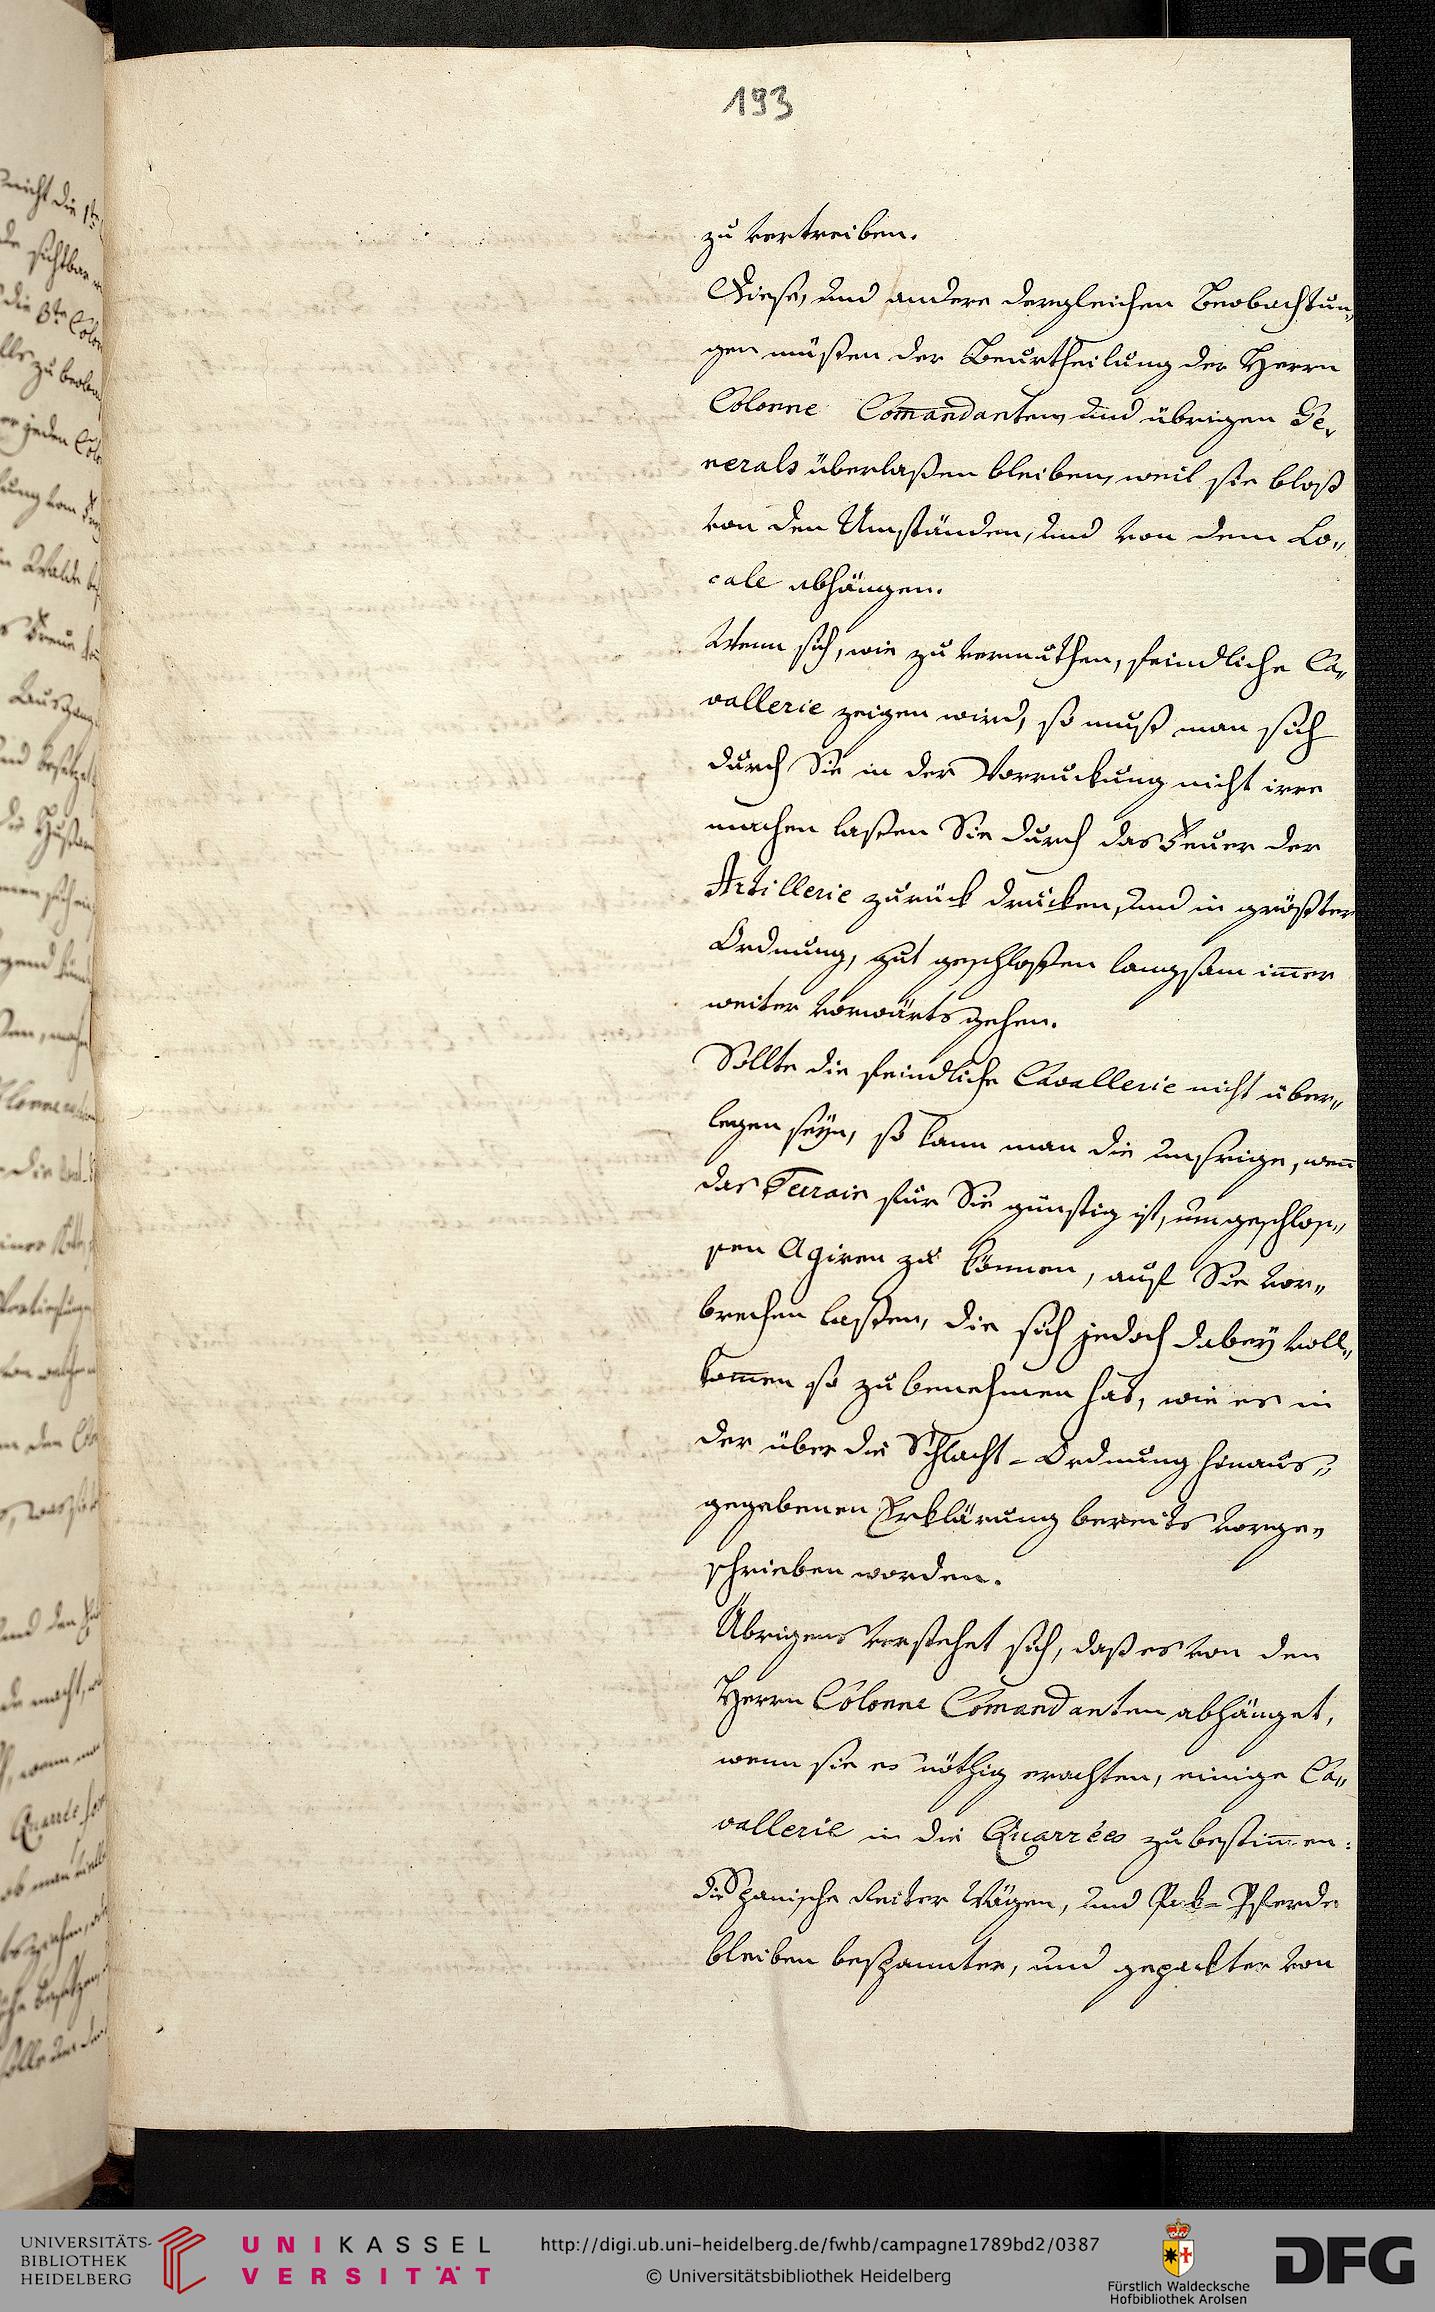 193
zu vertreiben.
Diese, und andere dergleichen Beobachtun,,
gen müßen der Beurtheilung der Herrn
Colonne Com̅andanten, und übrigen Ge,,
nerals überlaßen bleiben, weil sie bloß
von den Umständen, und von dem Lo,,
cale abhängen.
Wenn sich, wie zu vermuthen, feindliche Ca,,
vallerie zeigen wird, so muß man sich
durch Sie in der Vorruckung nicht irre
machen laßen Sie durch das Feuer der
Artillerie zurück drücken, und in größter
Ordnung, gut geschloßen langsam im̅er
weiter vorwärts gehen.
Sollte die feindliche Cavallerie nicht über,,
legen seÿn, so kann man die unsrige, wen̅
das Terrain für Sie günstig ist, um geschlos,,
sen Agiren zu können, auf Sie vor,,
brechen laßen, die sich jedoch dabeÿ voll,,
kom̅en so zu benehmen hat, wie es in
der über die Schlacht-Ordnung hinaus,,
gegebenen Erklärung bereits vorge,,
schrieben worden.
Übrigens verstehet sich, daß es von den
Herrn Colonne Com̅andanten abhänget,
wenn sie es nöthig erachten, einige Ca,,
vallerie in die Quarrées zu bestim̅en:
die Spanische Reiter Wägen, und Pak-Pferde
bleiben bespannter, und gepackter von
nicht die 1te
sichtbar
die 3te Colon
zu beob
jeden Colo
Quarrée
UNIVERSITÄTS-
BIBLIOTHEK
HEIDELBERG
UNIKASSEL
VERSITÄT
http://digi.ub.uni-heidelberg.de/fwhb/campagne1789bd2/0387
© Universitätsbibliothek Heidelberg
Fürstlich Waldecksche
Hofbibliothek Arolsen
DFG